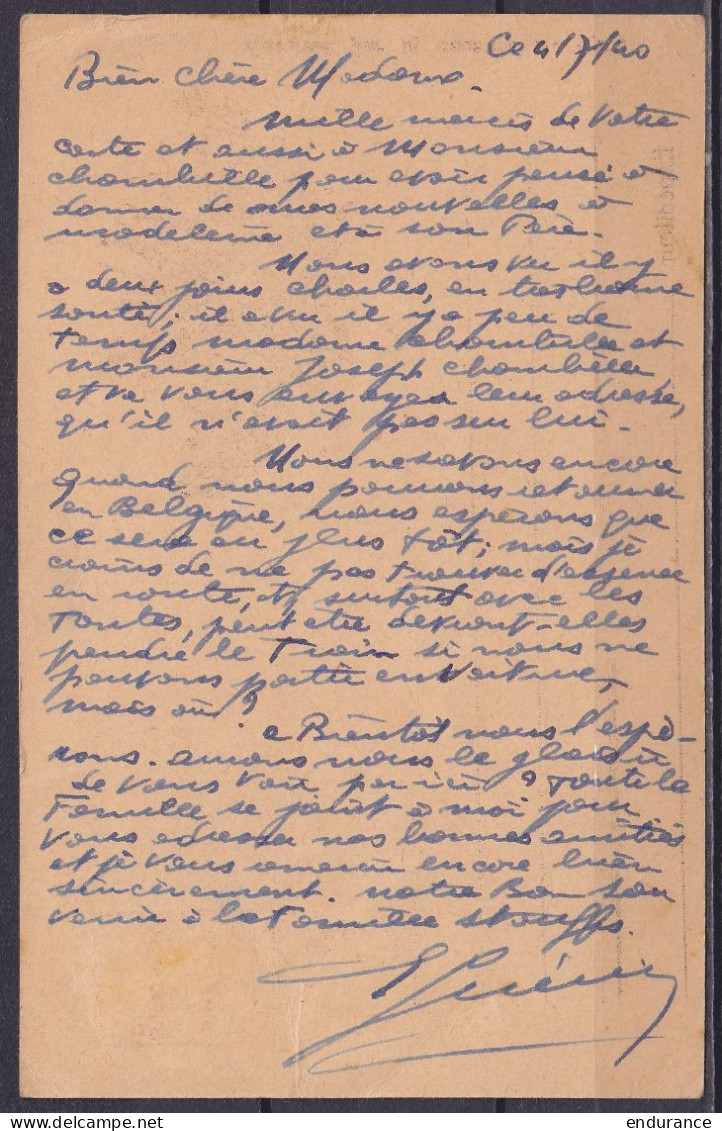 Ce 4/7/40
Bien chère Madame.
Mille mercis de votre
carte et aussi à Monsieur
Chombelle pour avoir pensé à
donner de mes nouvelles à
Madeleine et à son Père.
Nous avons vu il y
a deux jours Charles, en très bonne
santé; il a vu il y a peu de
temps madame Chombelle et
monsieur Joseph Chombelle
et va vous envoyer leur adresse,
qu'il n'avait pas sur lui.
Nous ne savons encore
quand nous pourrons retourner
en Belgique, nous espérons que
ce sera au plus tôt; mais je
crains de ne pas trouver d'essence
en route, et surtout avec les
Tantes, peut être devront-elles
prendre le Train si nous ne
pouvons partir en voiture,
mais où?
a Bientôt nous l'espé-
rons. aurons nous le plaisir
de vous voir par ici? toute la
Famille se joint à moi pour
vous adresser nos bonnes amitiés
et je vous remercie encore bien
sincèrement. notre Bon sou
venir à la Famille Stouffs.
Guérin
endurance